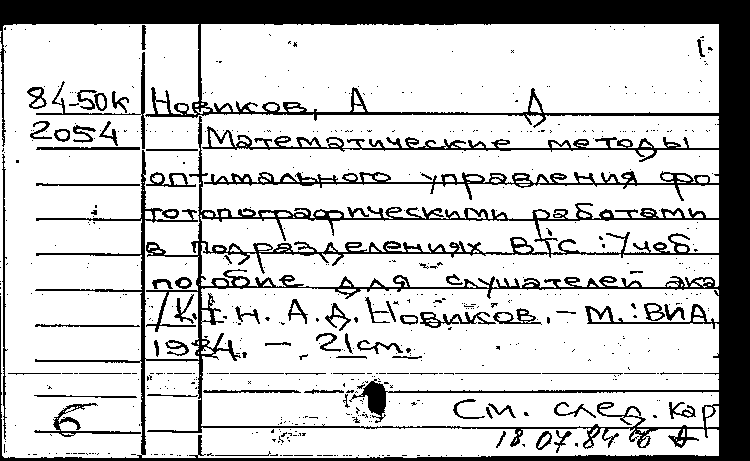 84-50к Новиков, А Д
2054 Математические методы
оптимального управления фо-
тотопографическими работами
в подразделениях ВТС : Учеб.
пособие для слушателей ака
/К.т.н. А.Д. Новиков. – М. : ВИА,
1984. – 21см.
См. след. кар
6
18.07.84